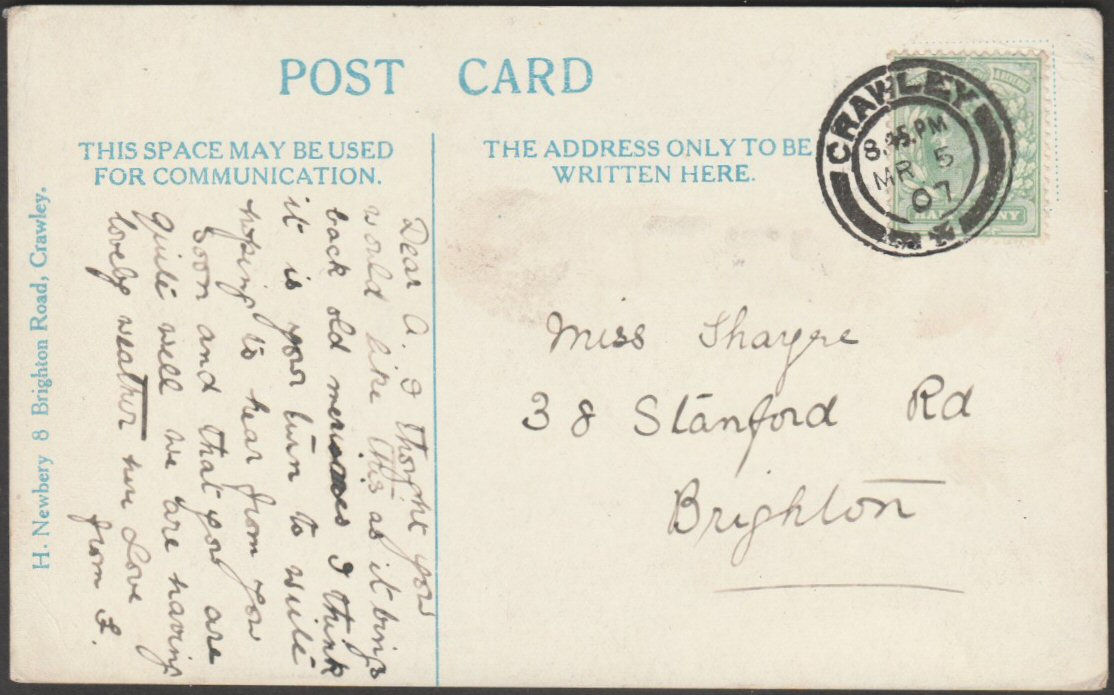 POST CARD
THIS SPACE MAY BE USED
FOR COMMUNICATION.
THE ADDRESS ONLY TO BE
WRITTEN HERE.
CRAWLEY
8.45.PM
MR 5
07
H. Newbery 8 Brighton Road, Crawley.
Dear A. I thought you
would like this as it brings
back old memories I think
it is your turn to write
hoping to hear from you
soon and that you are
quite well we are having
lovely weather here Love
from F.
Miss Thayre
38 Stanford Rd
Brighton